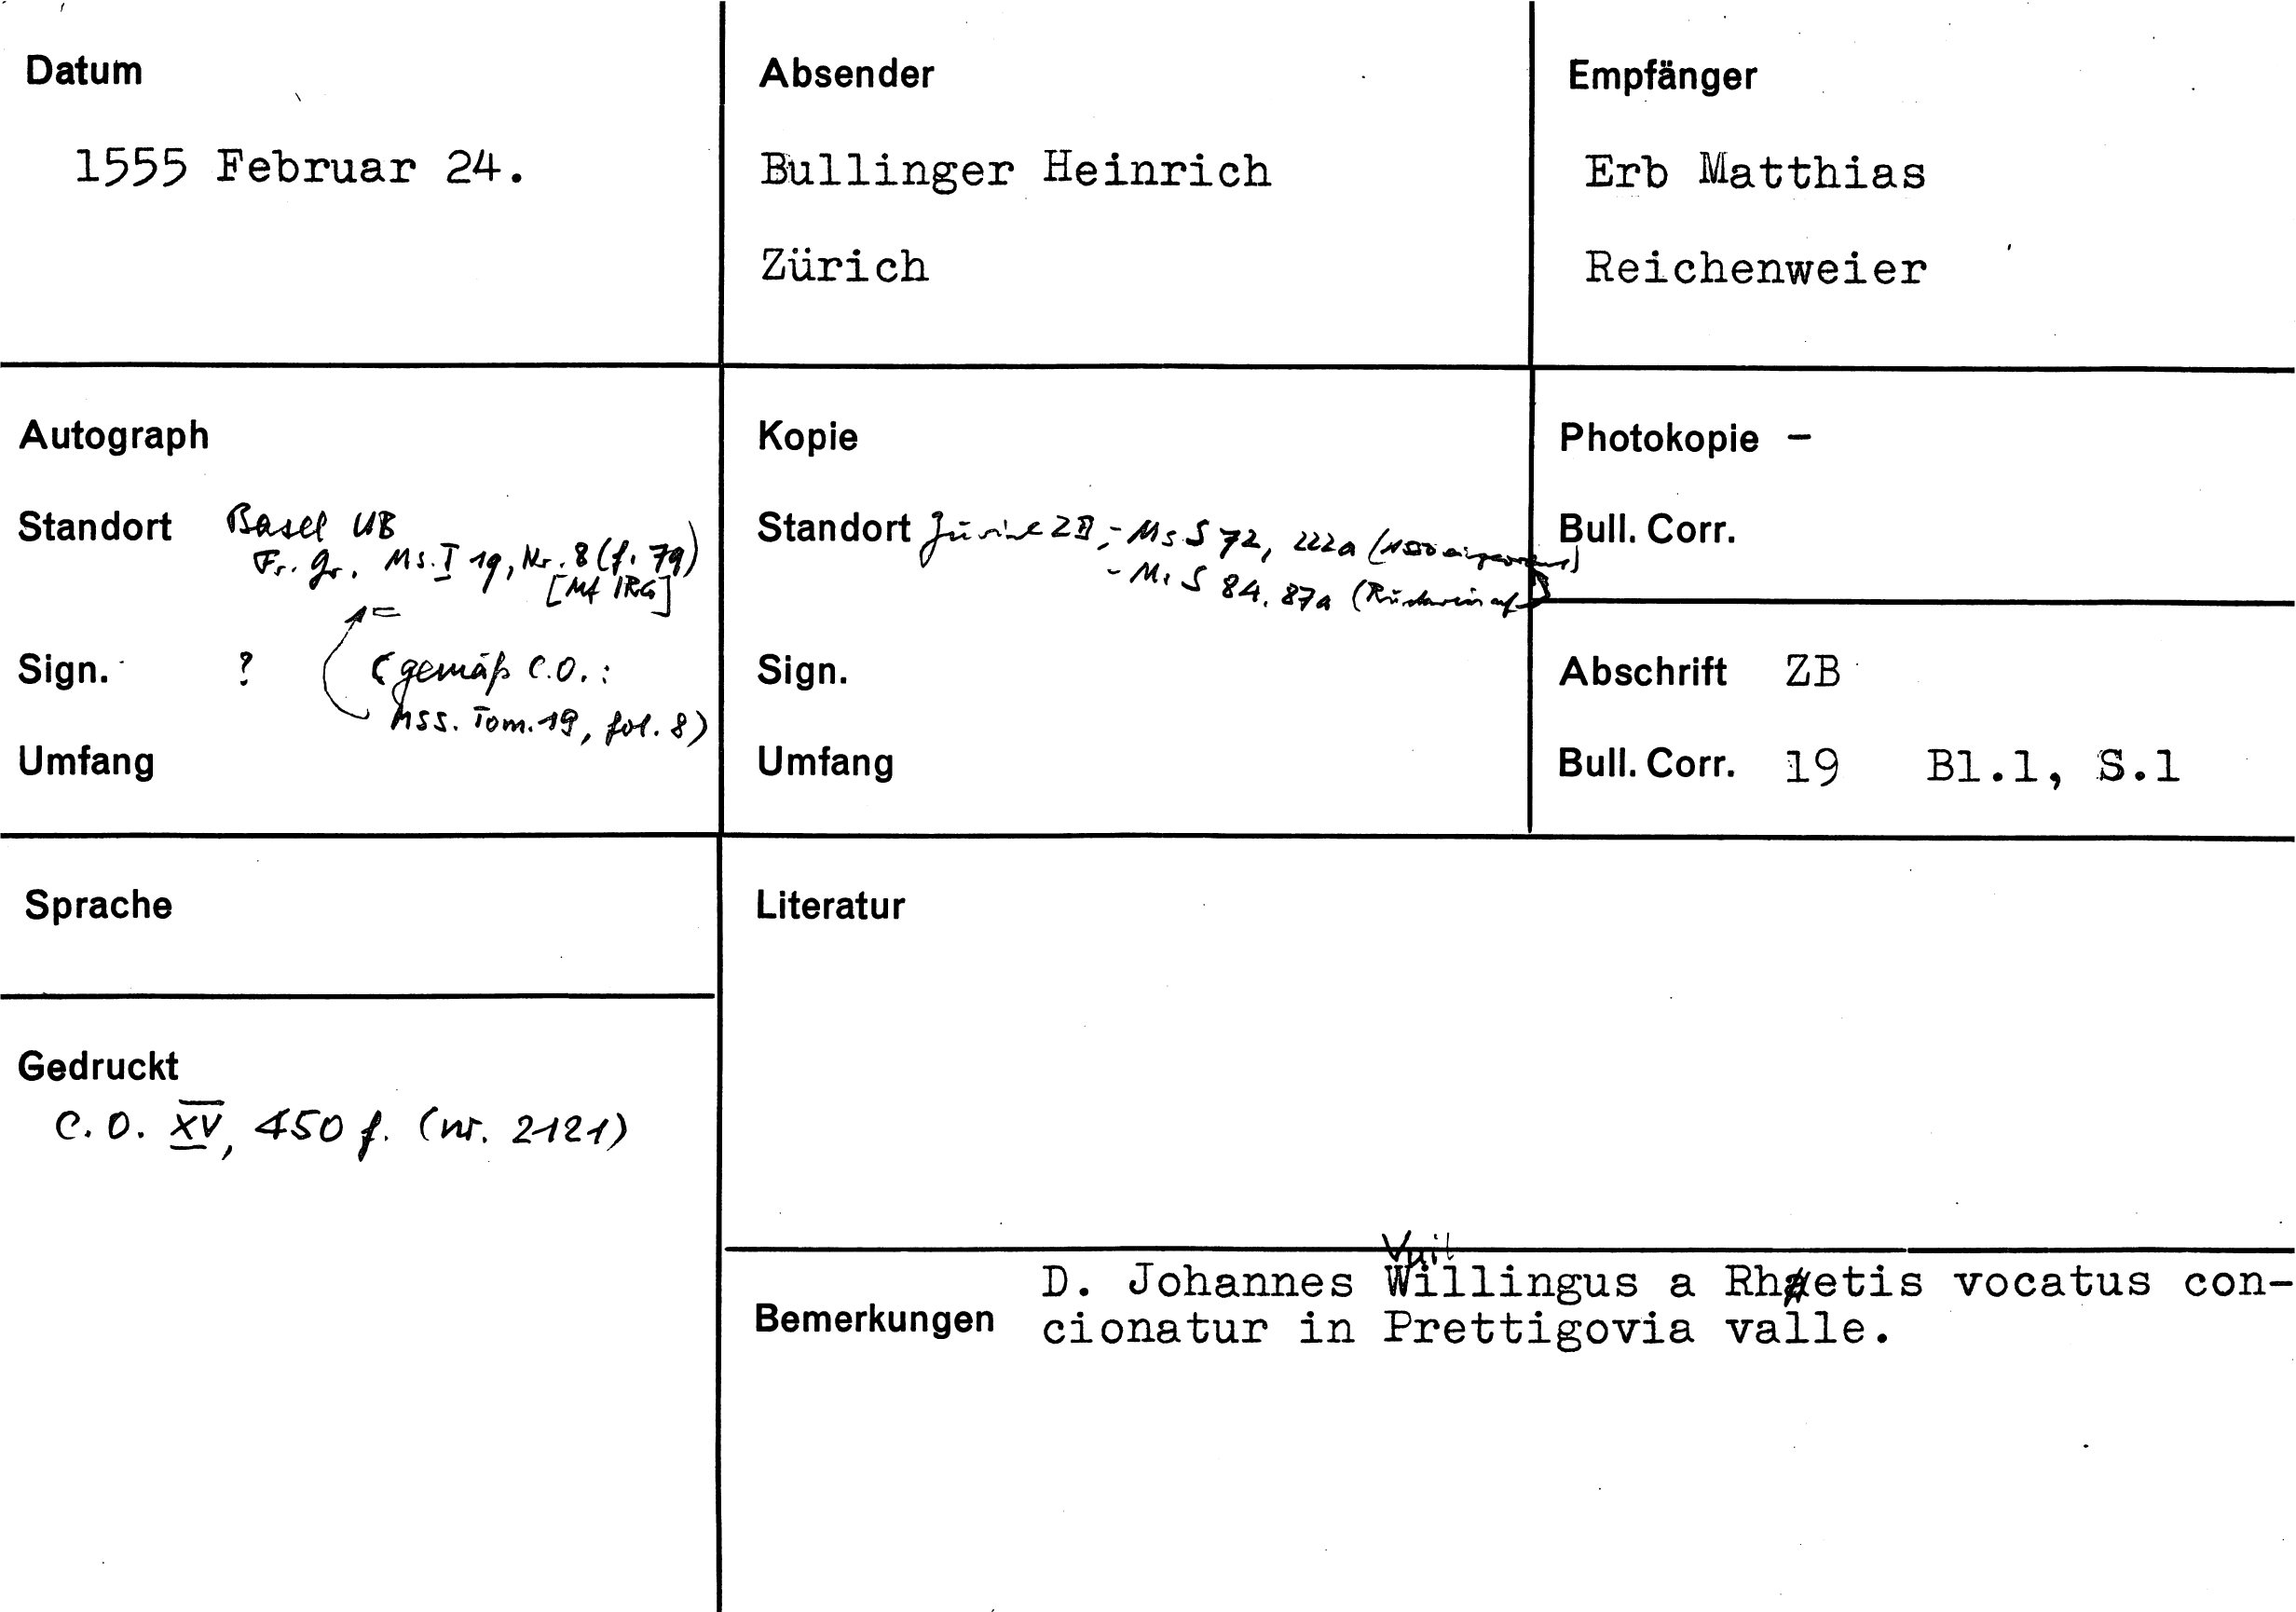 Datum
1555 Februar 24.
Absender
Bullinger Heinrich
Zürich
Empfänger
Erb Matthias
Reichenweier
Autograph
Standort Basel UB
Fr. Gr. Ms. I 19, Nr. 8 (f. 79)
[Mf IRG]
Sign. ? (gemäß C.O.:
Mss. Tom. 19, fol. 8)
Umfang
Kopie
Standort Zürich ZB, - Ms S 72, 222a
- Ms S 84, 87a
Sign.
Umfang
Photokopie -
Bull. Corr.
Abschrift ZB
Bull. Corr. 19 Bl.1, S.1
Sprache
Gedruckt
C.O. XV, 450 f. (nr. 2121)
Literatur
Bemerkungen
Vuil
D. Johannes Willingus a Rhaetis vocatus con-
cionatur in Prettigovia valle.